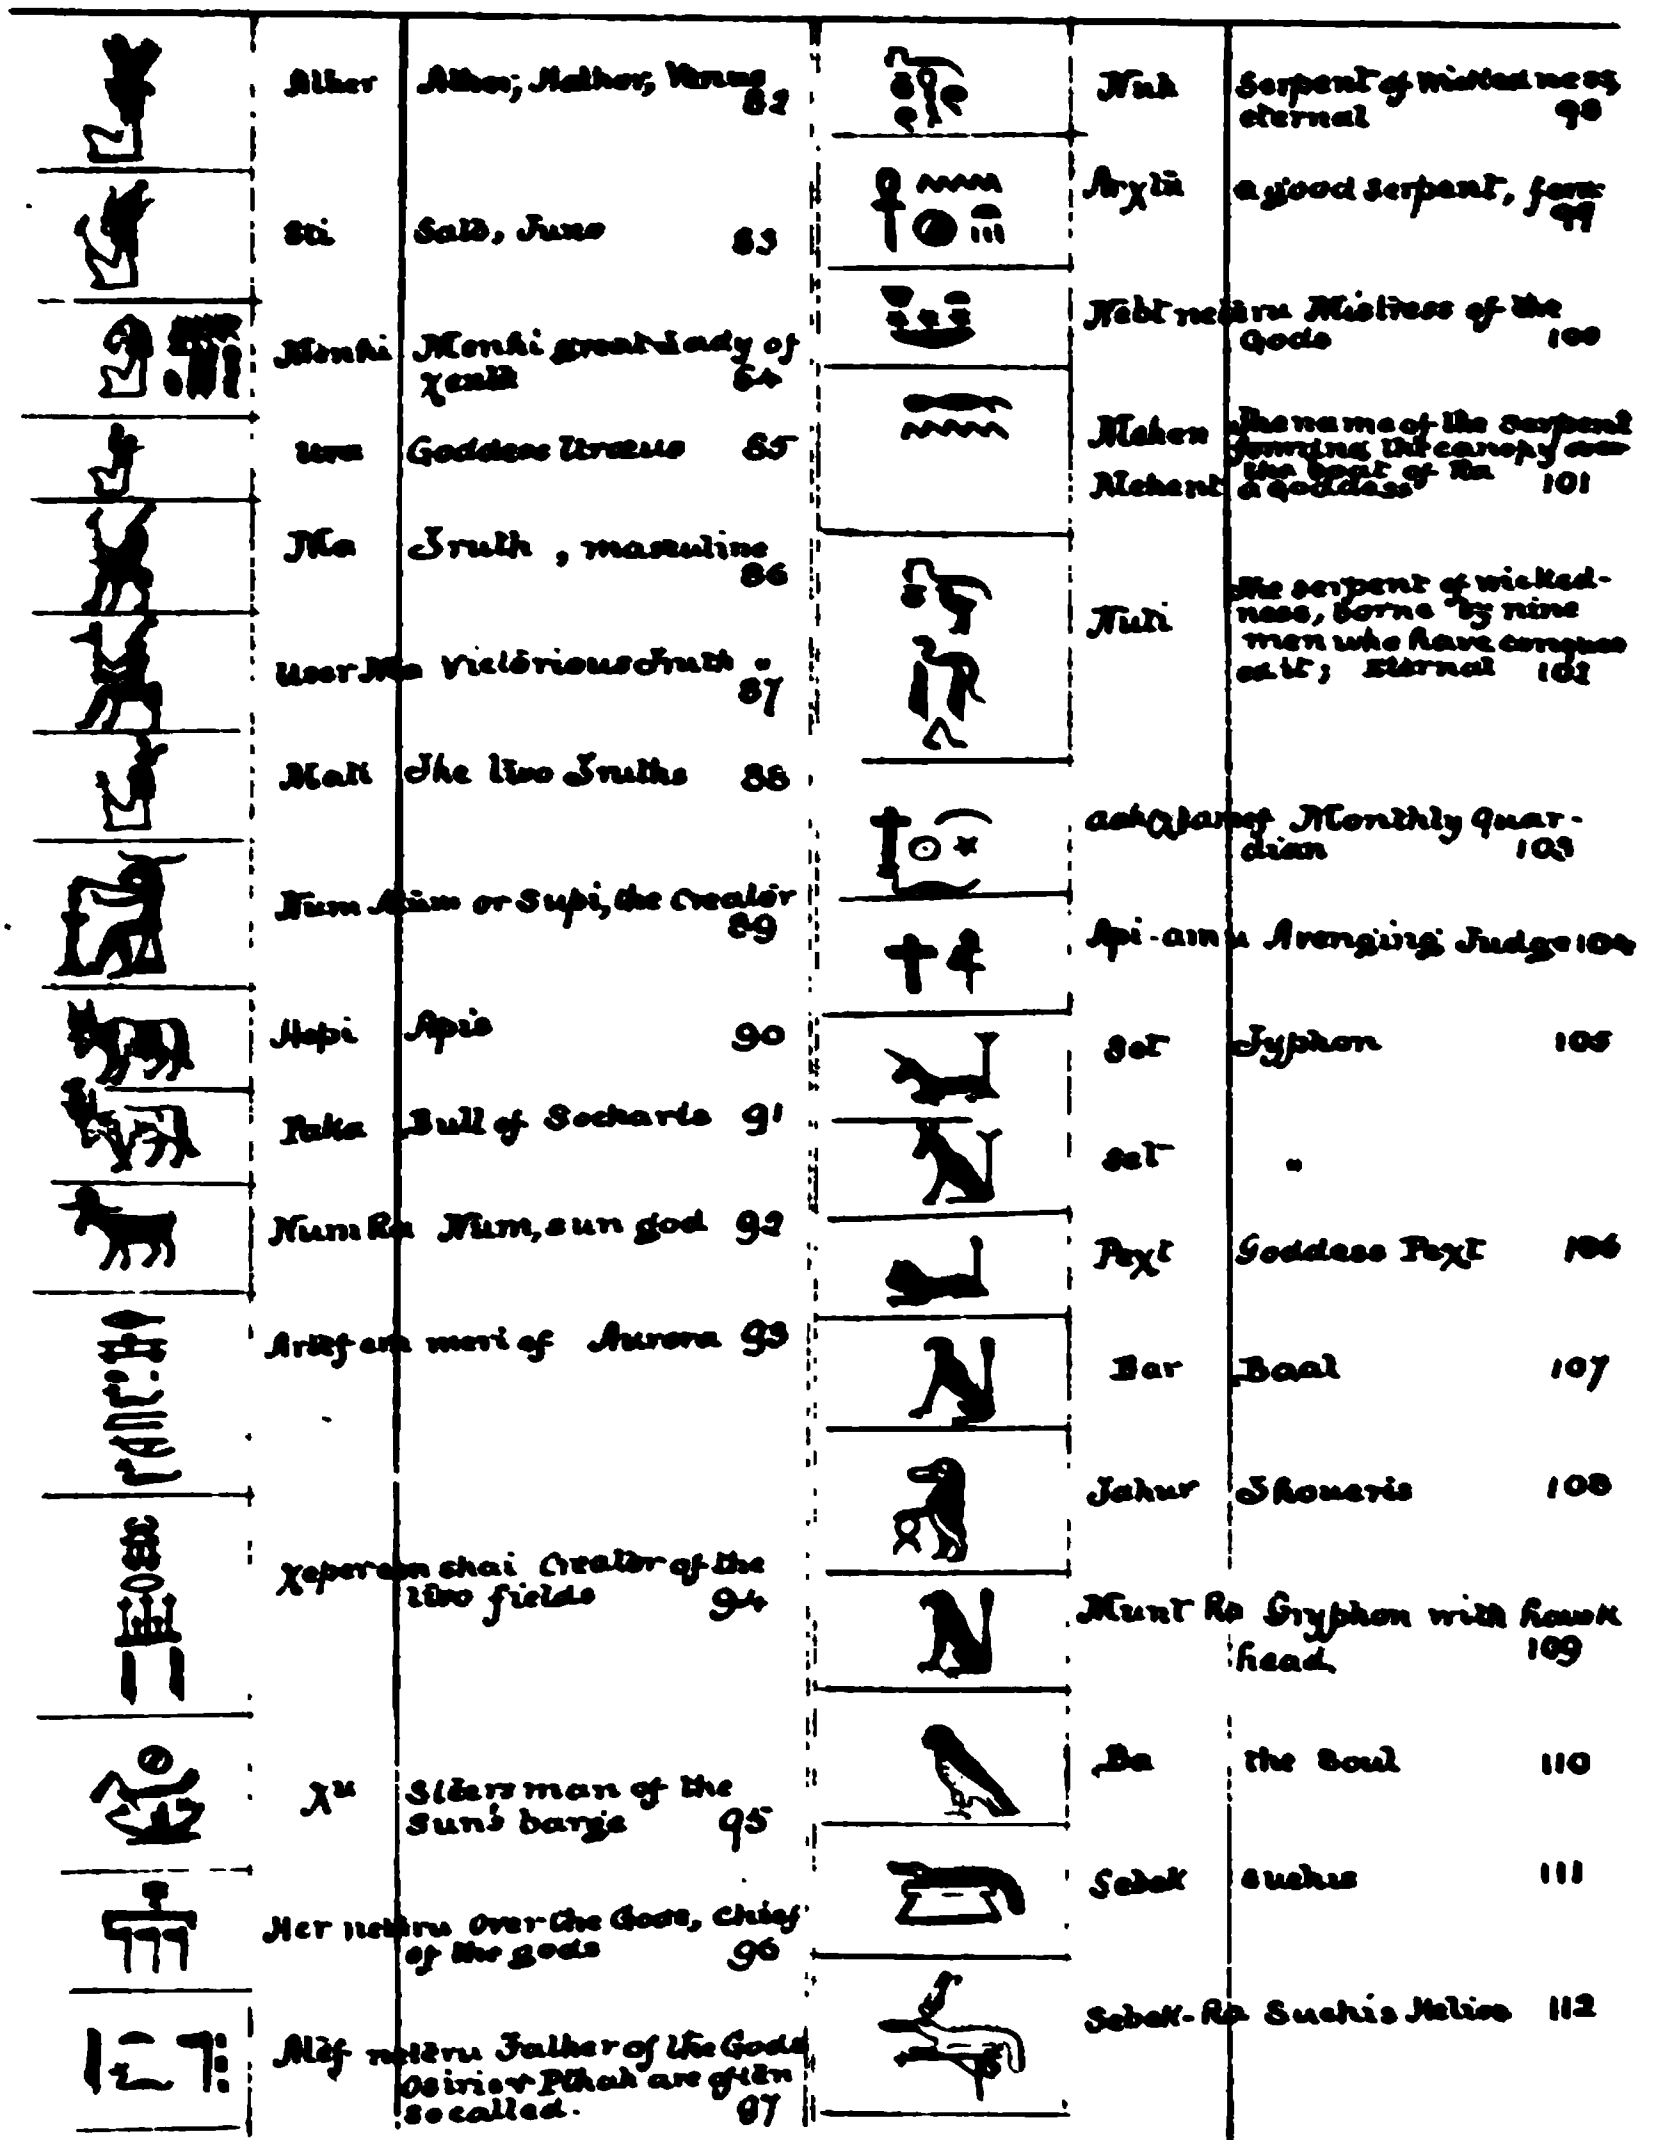 Ather Athor, Hathor, Venus
82
Sti Satis, Juno 83
Menhi Menhi great Lady of
84
Ura Goddess Uraeus 85
Ma Truth, masculine
86
User Ma Victorious Truth "
87
Mati The two Truths 88
Num Num or Supi, the Creator
89
Hapi Apis 90
Paka Bull of Socharis 91
Num Ra Num, sun god 92
meri of Aurora 93
shai Creator of the
two fields 94
χu Stiersman of the
sun's barge 95
Her neteru Over the Gods, chief
of the gods 96
Atef neteru Father of the Gods
Osiris or Pthah are often
so called. 97
Nuh Serpent of wickedness,
eternal 98
a good serpent,
99
Nebt neteru Mistress of the
Gods 100
Mehen The name of the serpent
forming the canopy over
the boat of Ra
Mehent a goddess 101
Nuti The serpent of wicked-
ness, borne by nine
men who have conquer-
ed it; Eternal 102
Monthly guar-
dian 103
Api-ainu Avenging Judge 104
Set Typhon 105
Set "
Peχt Goddess Peχt 106
Bar Baal 107
Tahur Thoueris 108
Munt Ra Gryphon with hawk
head, 109
Ba the soul 110
Sebek suchis 111
Sebek-Ra Suchis Helios 112